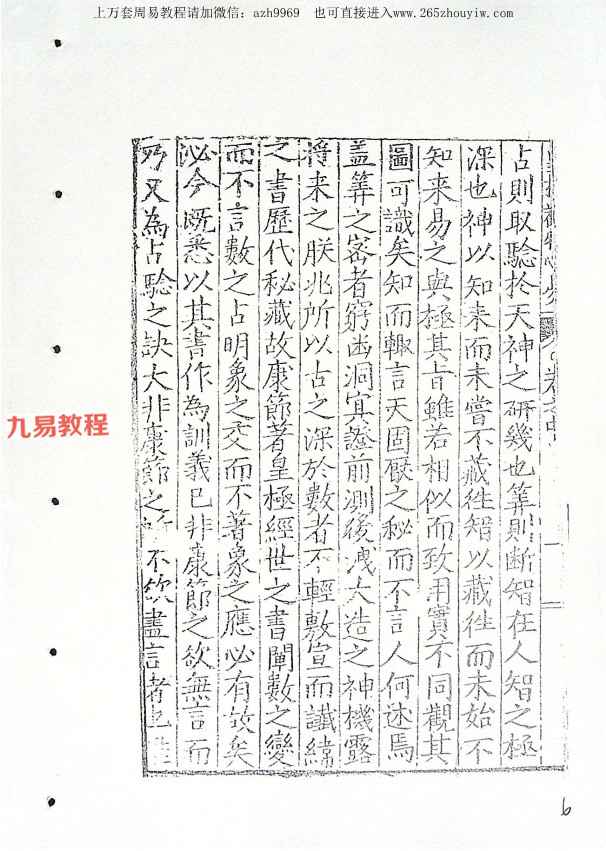 上万套周易教程请加微信：azh9969 也可直接进入www.265zhouyiw.com
占則取驗於天神之研幾也筭則断智在人智之極
深也神以知来而未嘗不藏徃智以藏徃而未始不
知来易之與極其旨雖若相似而致用實不同觀其
圖可識矣知而輙言天固厭之秘而不言人何述焉
盖筭之宻者窮幽洞冥證前測後洩大造之神機露
将来之朕兆所以古之深於數者不輕敷宣而讖緯
之書歷代秘藏故康節著皇極經世之書闡數之變
而不言數之占明象之交而不著象之應必有故矣
泌今既悉以其書作為訓義已非康節之欲無言而
又為占驗之訣大非康節之 不欲盡言者也
九易教程
6